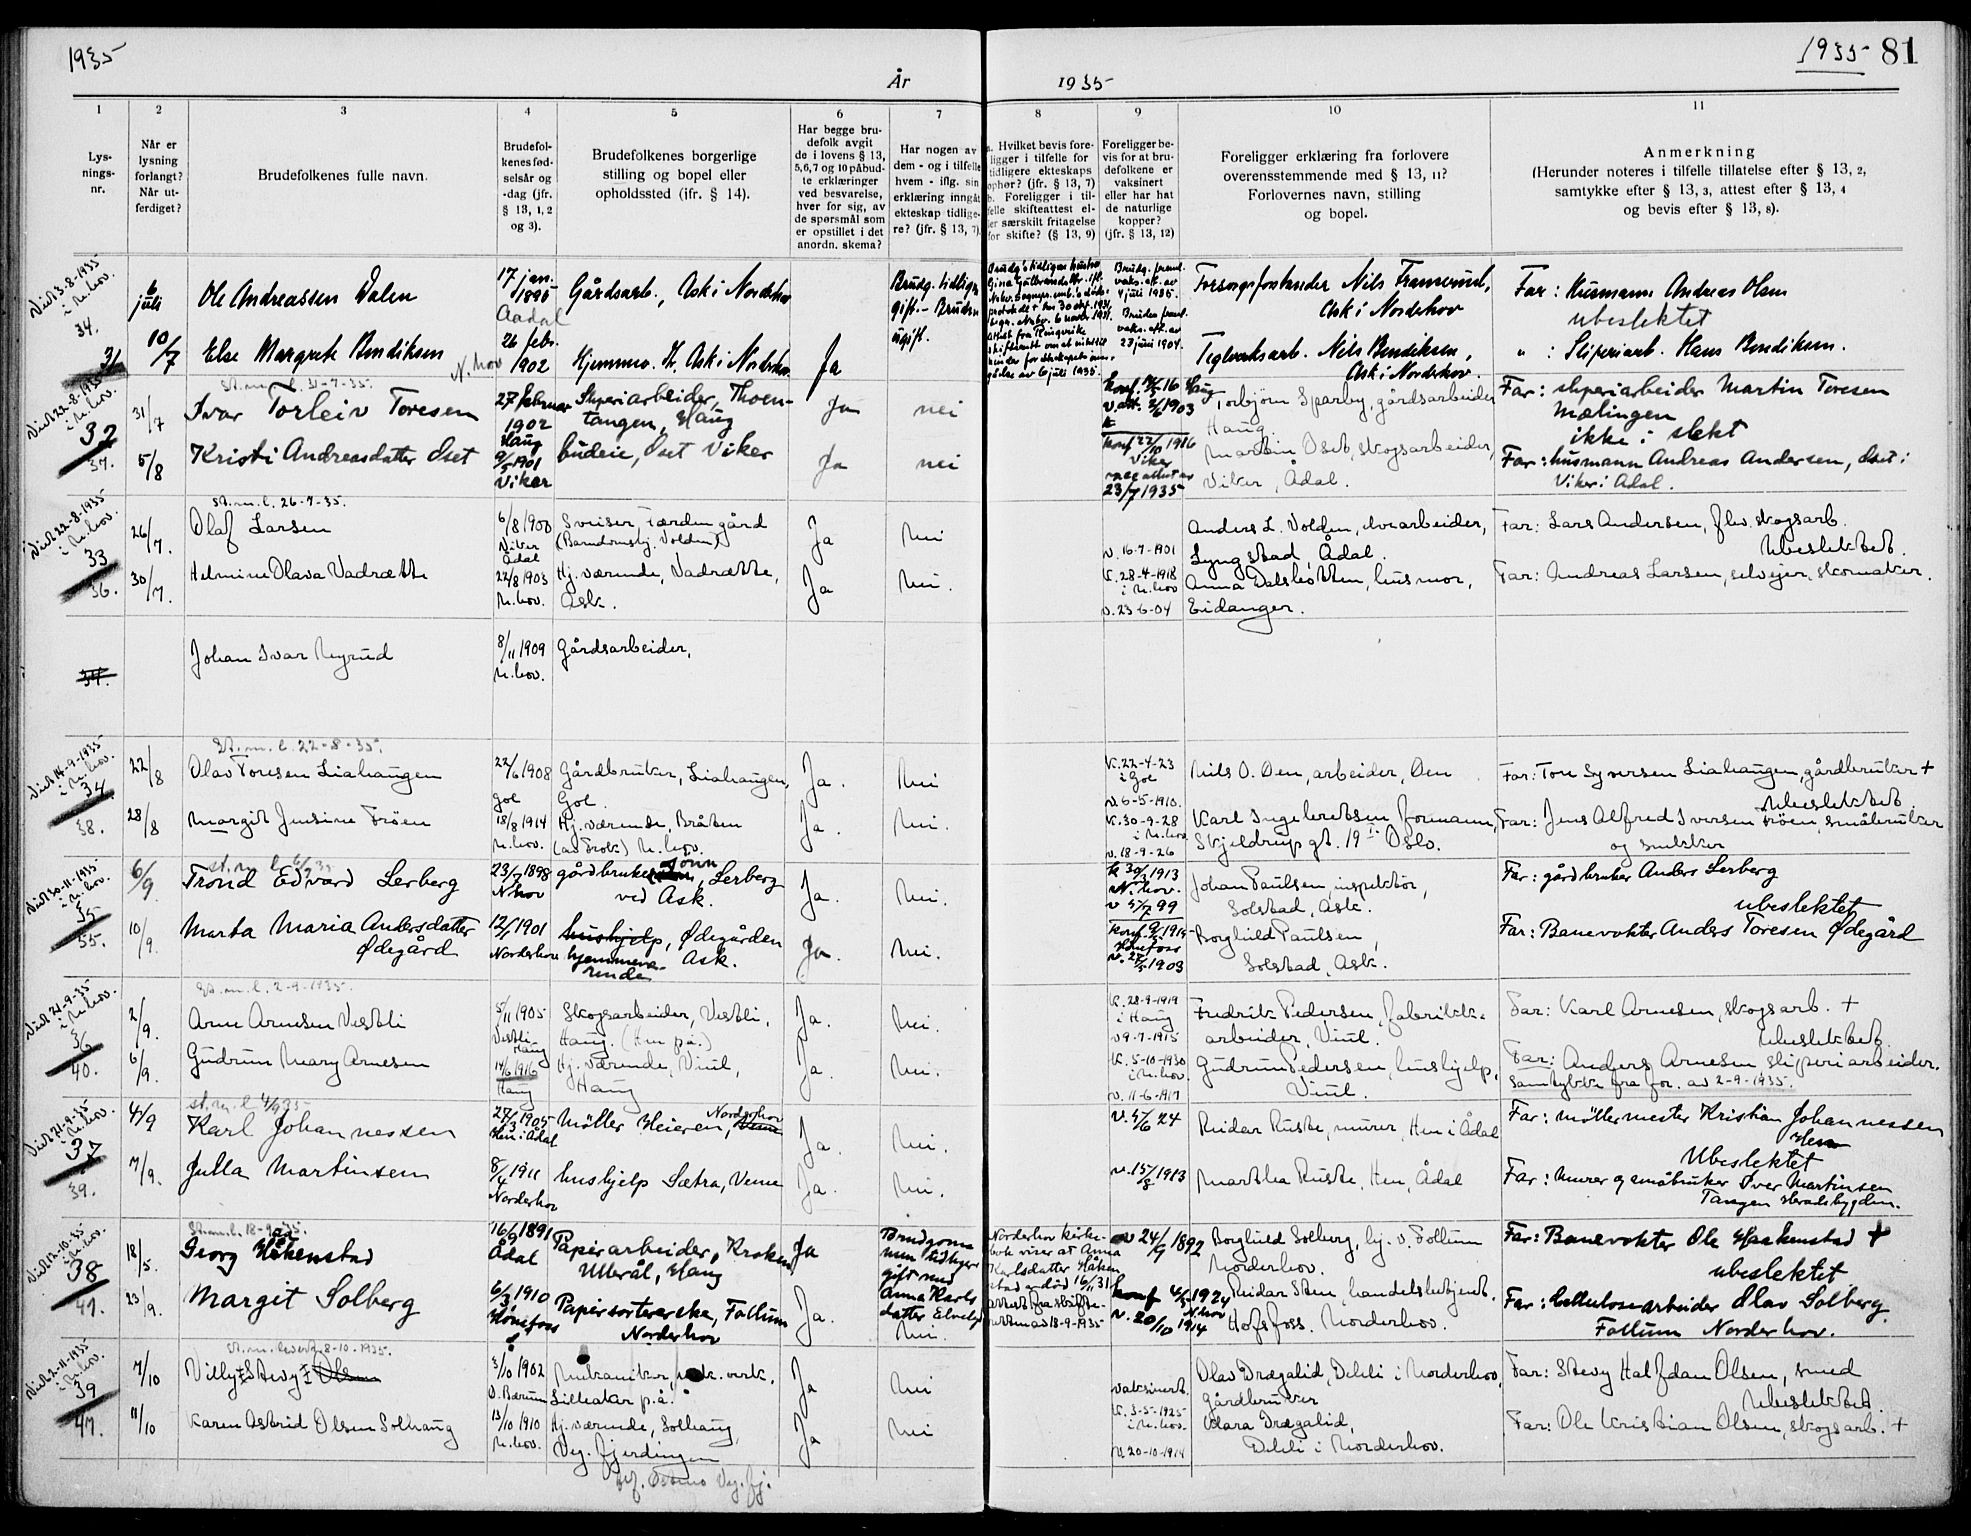 1935
År
1935
1935 81
1
2
3
4
5
6
7
8
9
10
11
Lys-
nings-
nr.
Når er
lysning
forlangt?
Når ut-
ferdiget?
Brudefolkenes fulle navn.
Brudefol-
kenes fød-
selsår og
-dag (jfr.
§ 13, 1, 2
og 3).
Brudefolkenes borgerlige
stilling og bopel eller
opholdssted (ifr. § 14).
Har begge bru-
defolk avgit
de i lovens § 13,
5,6,7 og 10 påbud-
te erklæringer
ved besvarelse,
hver for sig, av
de spørsmål som
er opstillet i det
anordn. skema?
Har nogen av
dem - og i tilfelle
hvem - iflg. sin
erklæring inngåt
ekteskap tidlige-
re? (jfr. § 13, 7)
a. Hvilket bevis fore-
ligger i tilfelle for
tidligere ekteskaps
ophør? (jfr. § 13, 7)
b. Foreligger i til-
felle skifteattest el-
ler særskilt fritagelse
for skifte? (§ 13, 9)
Foreligger be-
vis for at bru-
defolkene er
vaksinert
eller har hat
de naturlige
kopper?
(jfr. § 13, 12)
Foreligger erklæring fra forlovere
overensstemmende med § 13, 11?
Forlovernes navn, stilling
og bopel.
Anmerkning
(Herunder noteres i tilfelle tillatelse efter § 13, 2,
samtykke efter § 13, 3, attest efter § 13, 4
og bevis efter § 13, 8).
Viet 3-8-1935
i N.hov.
34.
31
6
juli
10/7
Ole Andreassen Dalen
Else Margrete Bendiksen
17 jan.
1895
Aadal
26 febr.
1902
N. hov
Gårdsarb., Ask i Nordrhov
Hjemmev. H. Ask i Nordrhov.
Ja
Brudg. tidligere
gift. - Bruden
ugift.
Brudg. freml.
vaks. att. av
4 juli 1935.
Bruden freml.
vaks. att. av
23 juni 1904.
Forsorgsforstander Nils Framerud,
Ask i Norderhov
Teglverksarb. Nils Bendiksen,
Ask i Norderhov.
Far: Husmann Andreas Olsen
ubeslektet
" : Sliperiarb. Hans Bendiksen.
Viet 22-8-1935
i N.hov.
32
37.
31/7
5/8
St. m. l. 31-7-35.
Ivar Torleiv Toresen
Kristi Andreasdatter Oset
27 februar
1902
Haug
9/5 1901
Viker
Sliperiarbeider, Thoen-
tangen, Haug
budeie, Oset Viker
Ja
nei
Ja
nei
23/7 1935
Torbjørn Sparby, gårdsarbeider
Haug.
Martin Oset, skogsarbeider,
Viker, Ådal.
Far: sliperiarbeider Martin Toresen
Mælingen
ikke i slekt
Far: husmann Andreas Andersen, Oset i
Viker i Ådal.
Viet 22-8-1935
i N.hov.
33
36.
26/7.
30/7.
St. m. l. 26-7-35.
Olaf Larsen
Helmine Olava Vadrætte
6/8 1900
Viker
Ådal
22/8 1903
N.hov.
Sveiser, Færden gård
(Barndomshj. Volden)
Hj. værende, Vadrætte,
Ask.
Ja
Nei
Ja
Nei.
v. 16-7-1901
K. 28-4-1918
i N.hov
v. 23-6-04
Anders L. Volden, elvearbeider,
Lyngstad, Ådal.
Anna Dalsbotten, husmor,
Eidanger.
Far: Lars Andersen, flv. skogsarb.
Ubeslektet.
Far: Andreas Larsen, selveier, skomaker.
34.
Johan Ivar Myrud
8/11 1909
N.hov.
Gårdsarbeider,
Viet 14-9-1935
i N.hov.
34.
38.
22/8
28/8
St. m. l. 22-8-35.
Olav Toresen Liahaugen
Margit Jensine Frøen
22/6 1908
Gol
18/8 1914
N.hov.
Gårdbruker, Liahaugen,
Gol.
Hj. værende, Bråten
(av Frok) N.hov.
Ja.
Nei
Ja.
Nei.
K. 22-4-23
i Gol
v. 6-5-1910.
K. 30-9-28
i N.hov
v. 18-9-26
Nils O. Øen, arbeider, Øen
Karl Ingebretsen formann,
Skjeldrups gt. 19 I Oslo.
Far: Tore Syversen Liahaugen, gårdbruker +
Ubeslektet.
Far: Jens Alfred Iversen Frøen, småbruker
og snekker
Viet 30-11-1935
i N.hov.
35
55.
6/9.
10/9.
st. m. l. 6/9 35
Trond Edvard Lerberg
Marta Maria Andersdatter
Ødegård
23/7 1898
N.hov
12/1 1901
Norderhov
gårdbrukersønn, Lerberg
ved Ask.
hushjelp, Ødegården
hjemmevæ- Ask.
rende
Ja.
Nei.
Ja.
Nei.
Johan Paulsen, inspektør,
Solstad, Ask.
Borghild Paulsen,
Solstad, Ask.
Far: gårdbruker Anders Lerberg
ubeslektet
Far: Banevokter Anders Toresen Ødegård
Viet 21-9-35
i N.hov.
36
40.
2/9.
6/9.
St. m. l. 2-9-1935.
Arne Arnesen Vestli
Gudrun Mary Arnesen
5/11 1905
Vestli
Haug
14/6 1916
Haug
Skogsarbeider, Vestli,
Haug. (Hen på.)
Hj. værende, Viul,
Haug
Ja.
Nei.
Ja.
Nei.
K. 28-9-1919
i Haug
v 9-7-1915
K. 5-10-1930
i N.hov.
v. 11-6-1917
Fredrik Pedersen, fabrikk-
arbeider, Viul.
Gudrun Pedersen, hushjelp,
Viul.
Far: Karl Arnesen, skogsarb. +
Ubeslektet.
Far: Anders Arnesen sliperiarbeider.
Samtykke fra for. av 2-9-1935.
Viet 21-9-35
i N.hov.
37
39.
4/9
7/9.
st. m. l 4/9 35
Karl Johannessen
Julla Martinsen
27/3 1905
Hen i Ådal
8/4 1911
Norderhov
Møller Heieren, Norderhov
hushjelp Sætra, Veme
Ja.
Nei.
Ja.
Nei.
v. 5/6 24
v. 15/8 1913
Reidar Ruste, murer, Hen i Ådal
Martha Ruste, Hen, Ådal
Far: møllermester Kristian Johannessen
Hen
Ubeslektet
Far: Murer og småbruker Iver Martinsen
Tangen Heradsbygden.
Viet 12-10-35
i N.hov.
38
41.
18/5.
23/9.
St. m. l. 18-9-35.
Georg Håkenstad
Margit Solberg
16/9 1891
Ådal
6/3 1910
Hønefoss
Papirarbeider, Kroken
Ullerål, Haug
Papirsorterske, Follum
Norderhov
Ja
Ja.
Brudgom-
men tidligere
gift med
Anna Karls
datter Elvelyd
Nei.
Norderhov kirke-
bok viser at Anna
Karlsdatter Håken
stad er død 16/1 31
Attest fra skifte-
retten av 18-9-1935
v 24/9 1892
konf 4/5 1924
N.hov
v. 20/10 1914
Borghild Solberg, hj. v. Follum
Norderhov.
Reidar Sten, handelsbetjent.
Hofsfoss. Norderhov.
Far: Banevokter Ole Haakenstad +
ubeslektet
Far: Cellulosearbeider Olav Solberg.
Follum Norderhov.
Viet 2-11-1935
i N.hov.
39
47.
7/10
11/10
St. m. levert 8-10-1935.
Villy Stevy Olsen
Karen Astrid Olsen Solhaug
3/10 1902
V. Bærum
13/10 1910
N.hov.
Mekaniker, mek. verk.
Lilleaker p.å.
Hj. værende, Solhaug
Veg. fjerdingen
Ja
Nei
Ja
Nei
vaksinert.
K. 3-5-1925
i N.hov.
v. 20-10-1914
Olav Drægalid, Dehli i Norderhov,
Gårdbruker
Klara Drægalid,
Dehli i Norderhov.
Far: Stevy Halfdan Olsen, smed
Ubeslektet.
Far: Ole Kristian Olsen, skogsarb. +